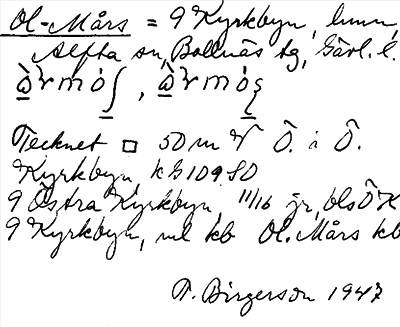 Ol-Mårs = 9 Kyrkbyn, hmn,
Alfta sn, Bollnäs tg, Gävl. l.
Tecknet □ 50 m V Ö. i Ö.
Kyrkbyn k b 109 SO
9 Östra Kyrkbyn, 11/16 jr, bls Ö K
9 Kyrkbyn, ml kb Ol. Mårs kb
P. Birgerson 1947